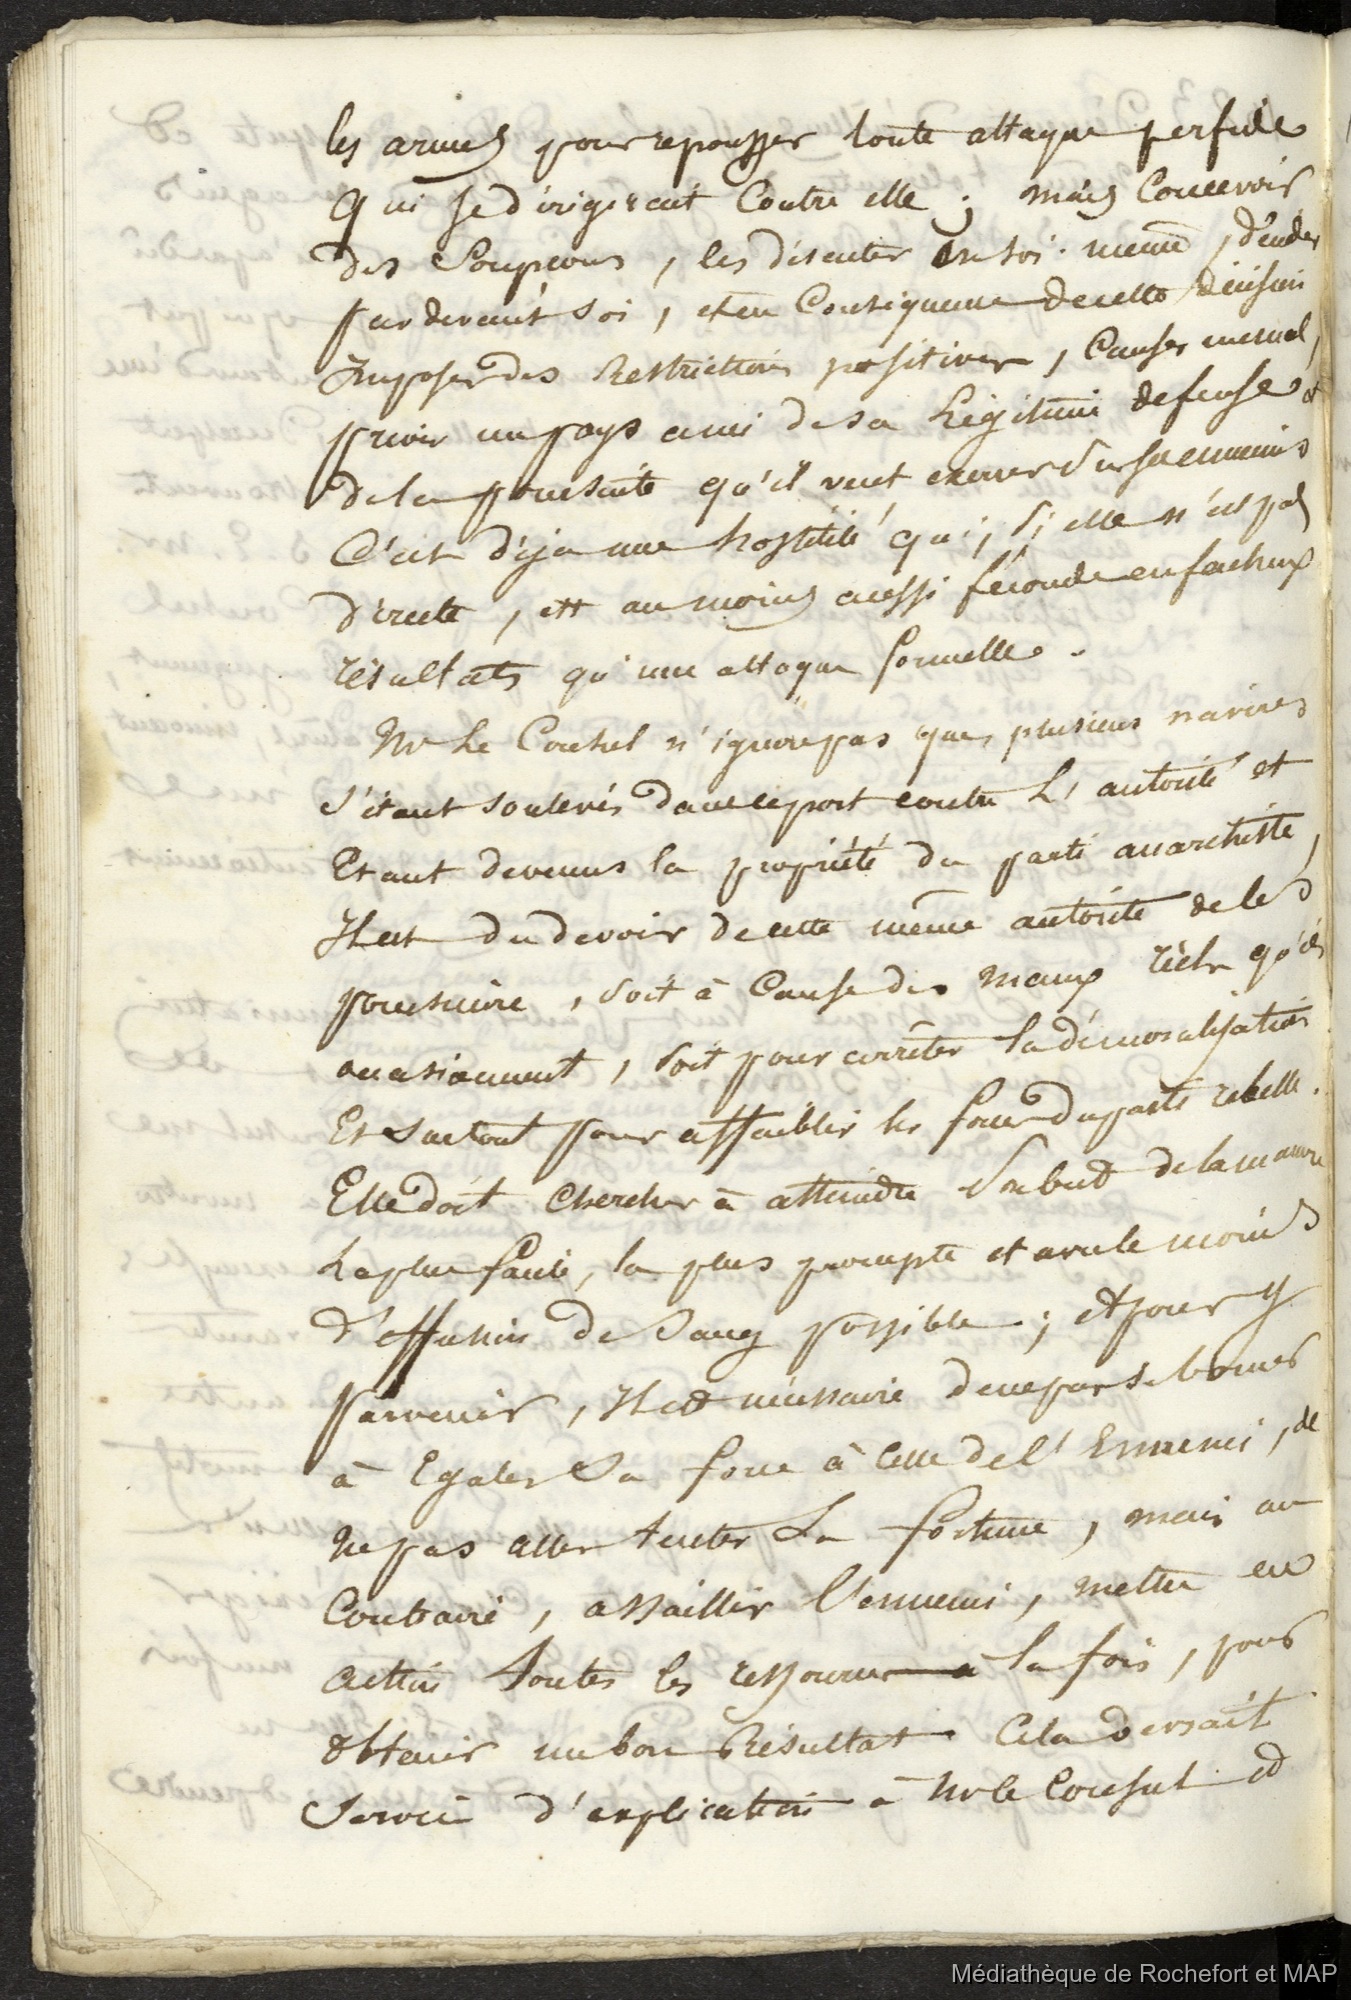 les armes pour repousser toute attaque perfide
Qui se dirigerait Contre elle ; mais Concevoir
des Soupçons, les discuter en soi-même, décider
par devant soi, et en Conséquence de cette décision
Imposer des Restrictions positives, Causer un mal,
priver un pays ami de sa Légitime défense et
de la poursuite qu'il veut exercer sur ses ennemis
C'est déja une hostilité qui, si elle n'est pas
directe, est au moins aussi féconde en facheux
résultats qu'une attaque formelle.
Mr Le Consul n'ignore pas que plusieurs navires
s'étant soulevés dans ce port contre L'autorité et
Etant devenus la propriété du parti anarchiste,
Il est du devoir de cette même autorité de les
poursuivre, soit à Cause des maux réels qu'ils
occasionnent, soit pour arrêter la démoralisation
Et surtout pour affaiblir les forces du parti rebelle.
Elle doit chercher à atteindre son but de la manière
La plus facile, la plus prompte et avec le moins
d'effusion de Sang possible ; et pour y
parvenir, Il est nécessaire de ne pas se borner
à Egaler Sa force à Celle de l'Ennemi, de
Ne pas aller tenter La fortune, mais au
Contraire, assaillir l'ennemi, mettre en
action toutes les ressources à la fois, pour
obtenir un bon Résultat. Cela devrait
Servir d'explication à Mr le Consul et
Médiathèque de Rochefort et MAP